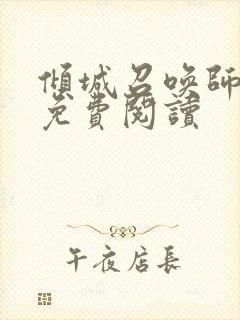 傾城召喚師
免費閱讀
午夜店長